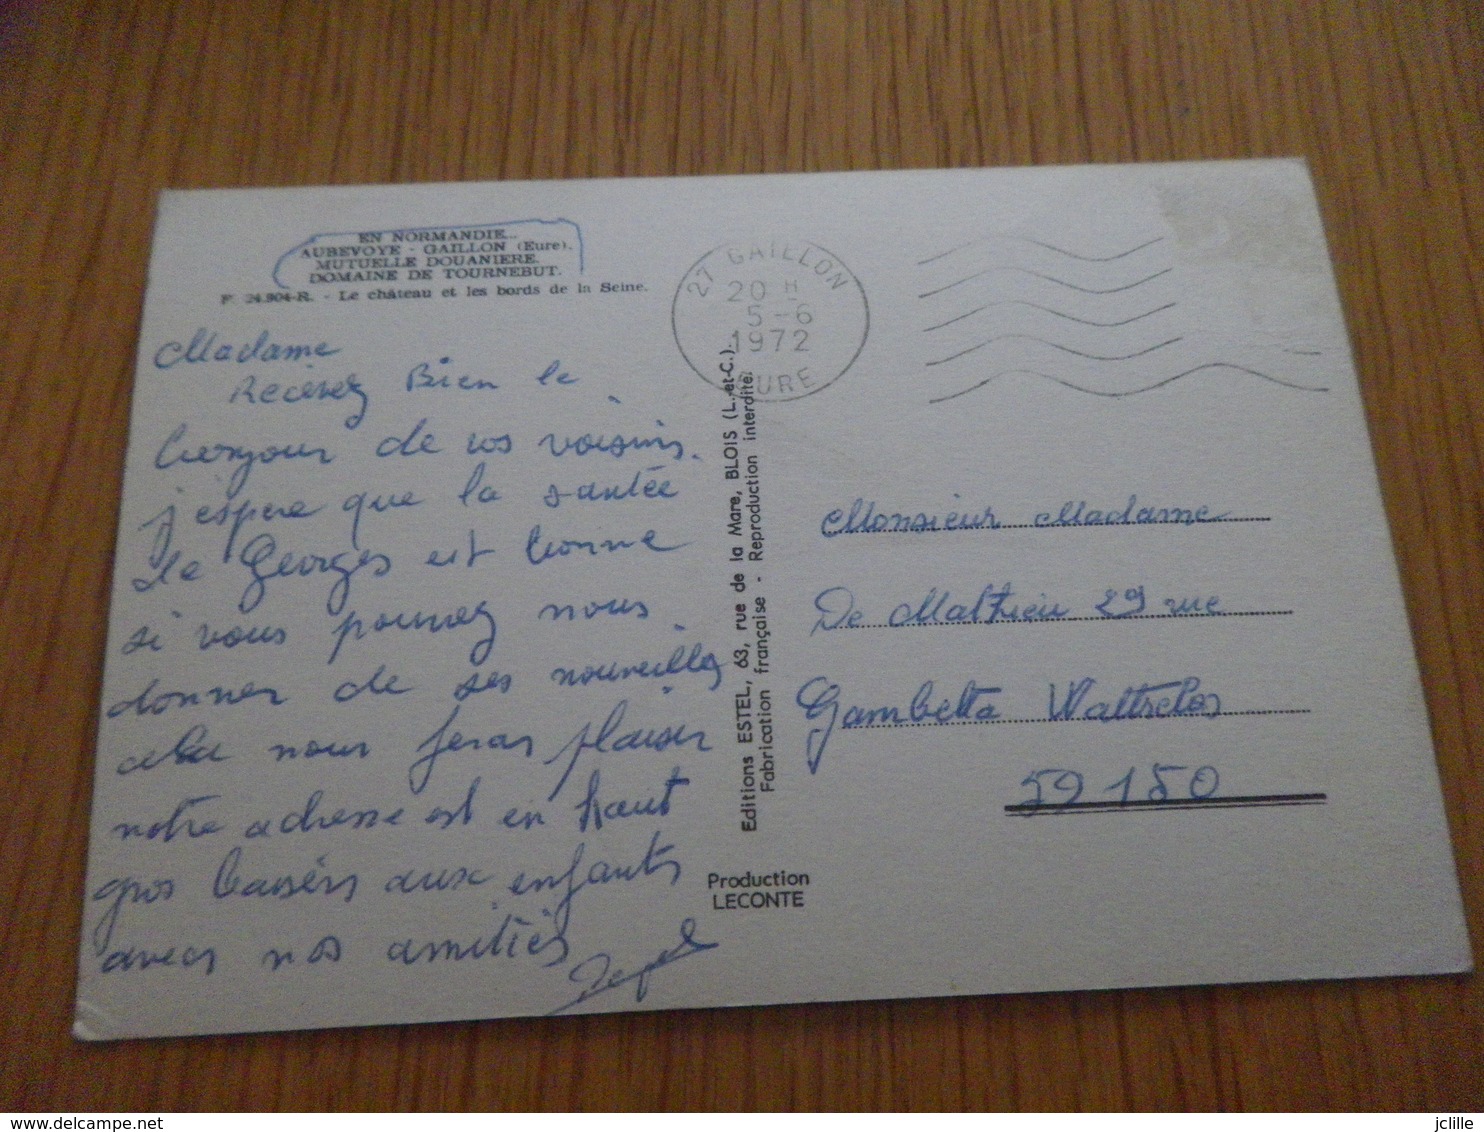 EN NORMANDIE...
AUBEVOYE - GAILLON (Eure).
MUTUELLE DOUANIERE.
DOMAINE DE TOURNEBUT.
F. 24.904-R. - Le château et les bords de la Seine.
27 GAILLON
20 H
5-6
1972
EURE
Madame
Recevez Bien le
bonjour de vos voisins.
j'espere que la santée
de Georges est bonne
si vous pouvez nous
donner de ses nouvelles
cela nous feras plaisir
notre adresse est en haut
gros baisers aux enfants
avec nos amitiés
Editions ESTEL, 63, rue de la Mare, BLOIS (L.-et-C.).
Fabrication française - Reproduction interdite.
Production
LECONTE
Monsieur Madame
De Mathieu 29 rue
Gambetta Wattrelos
59150
delcampe.net
jclille